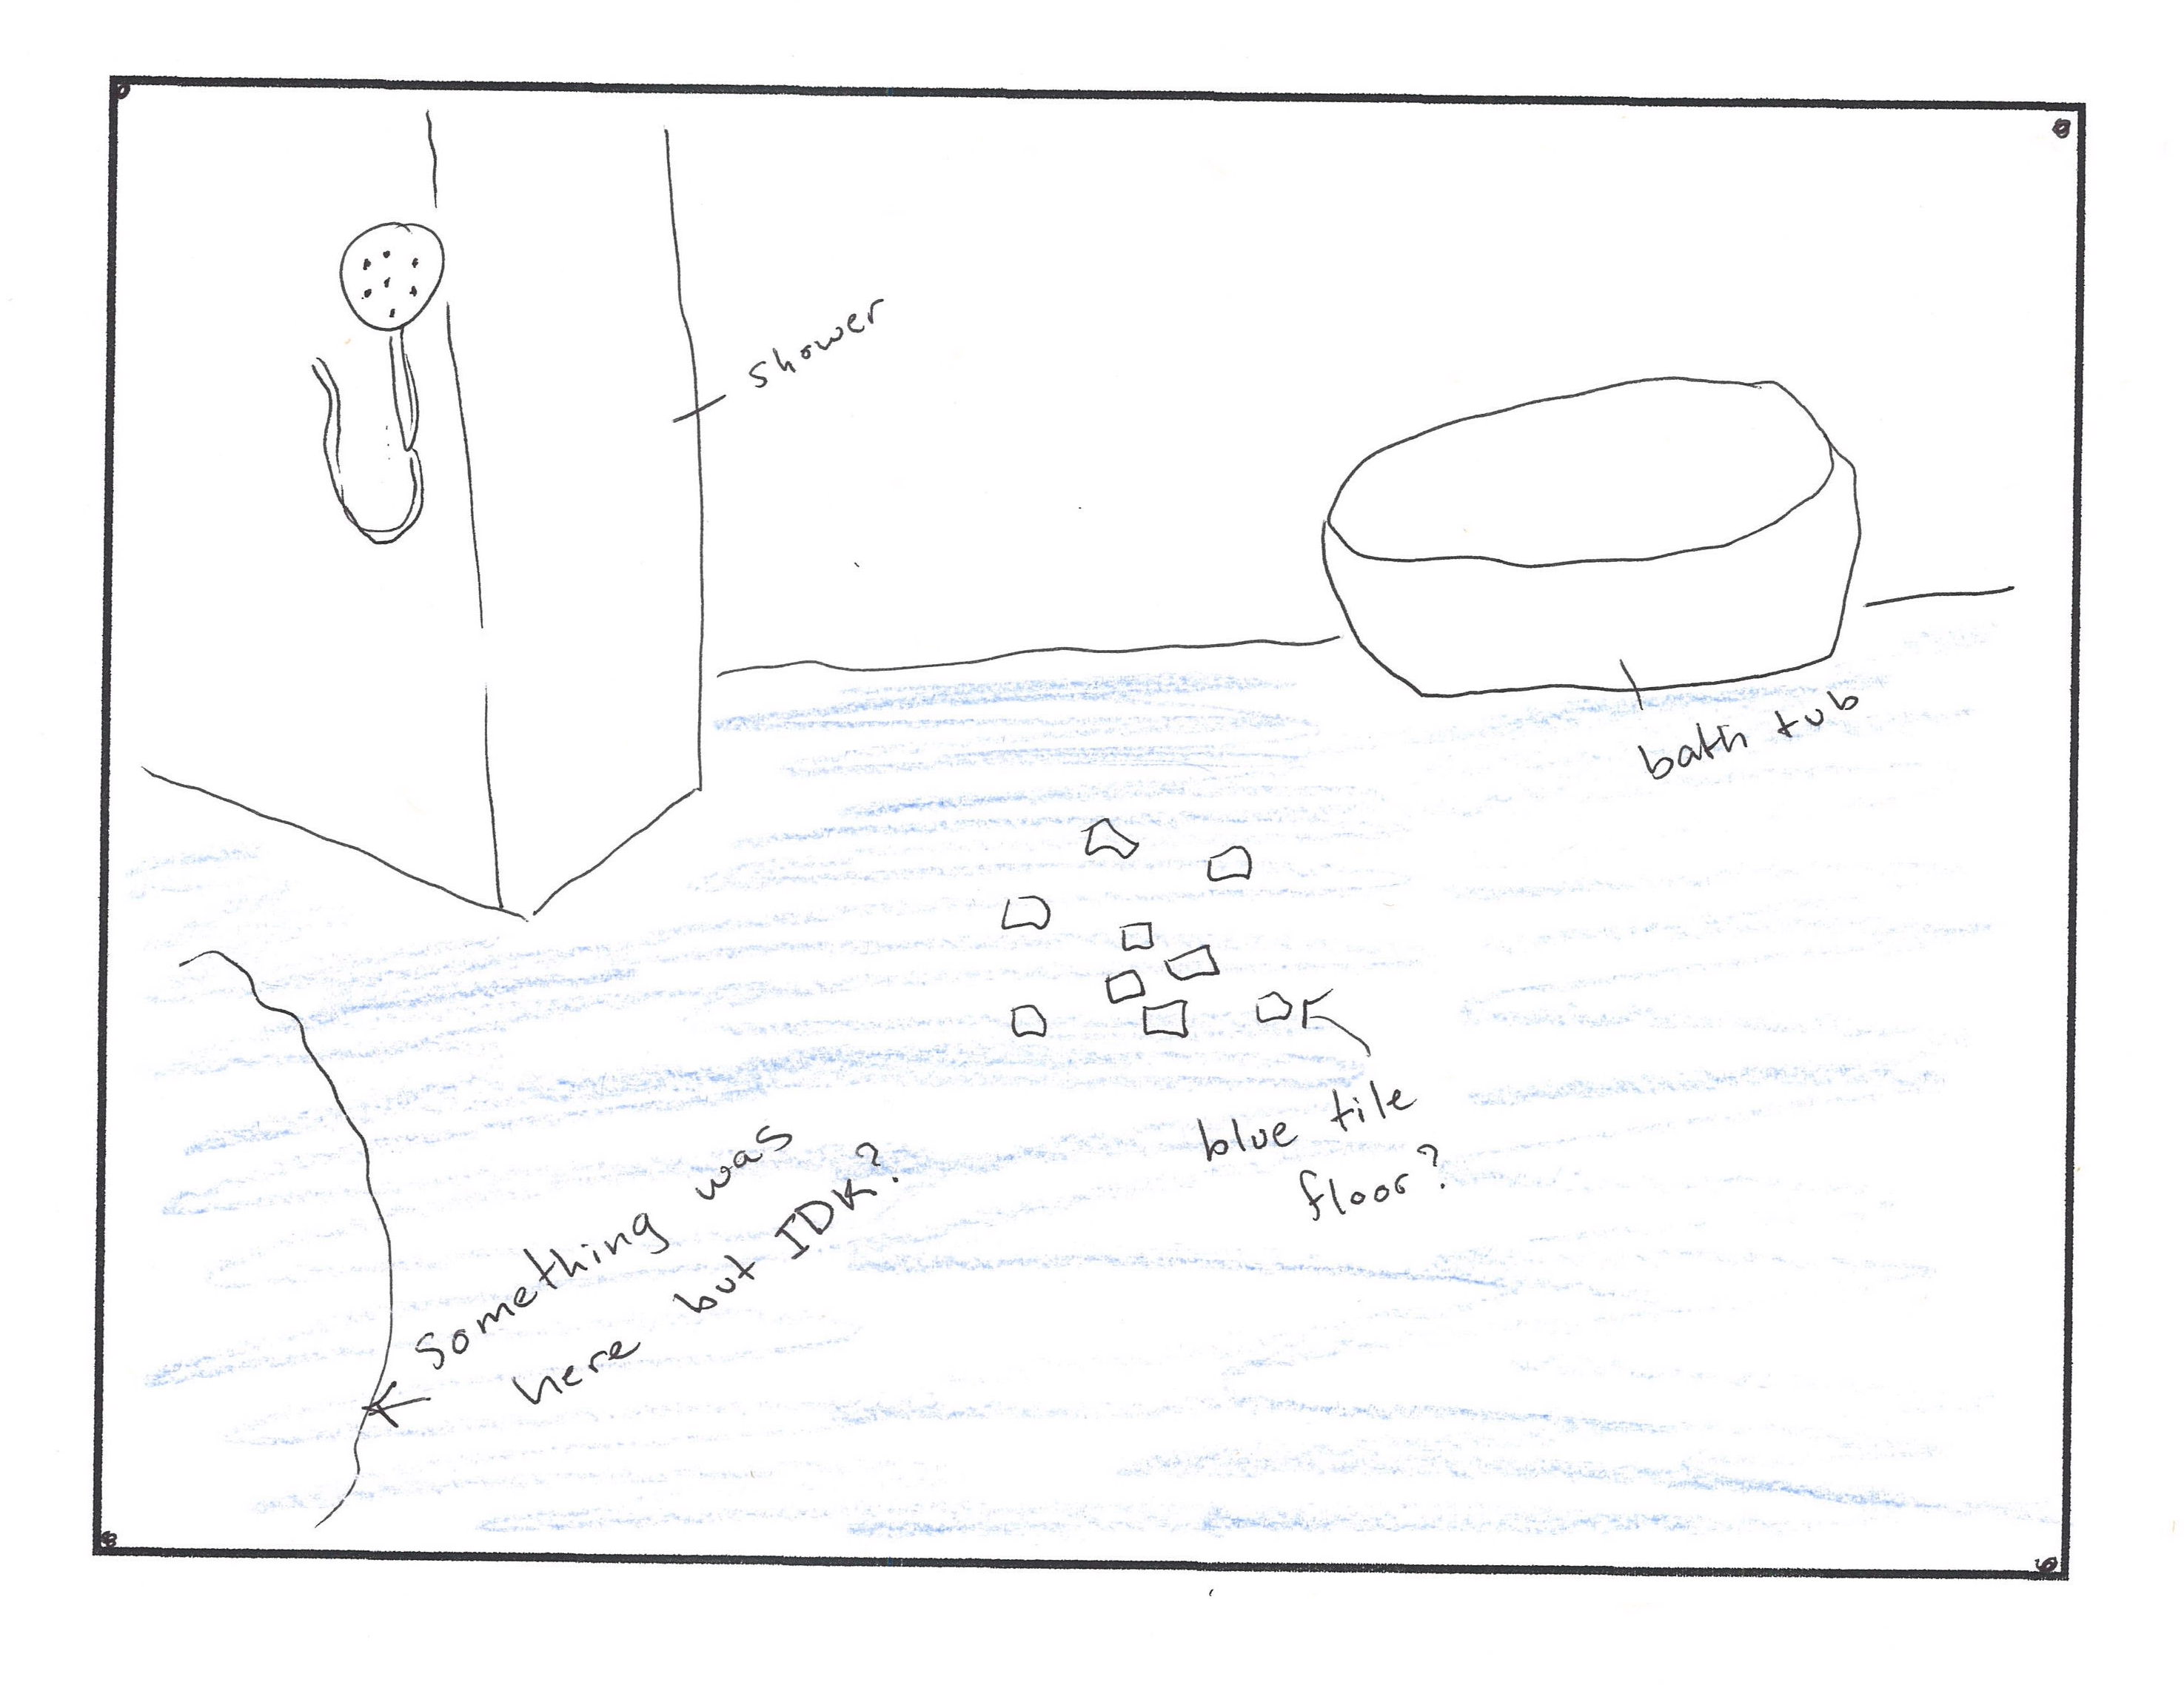 shower
bath tub
blue tile
floor?
something was
here but IDK?